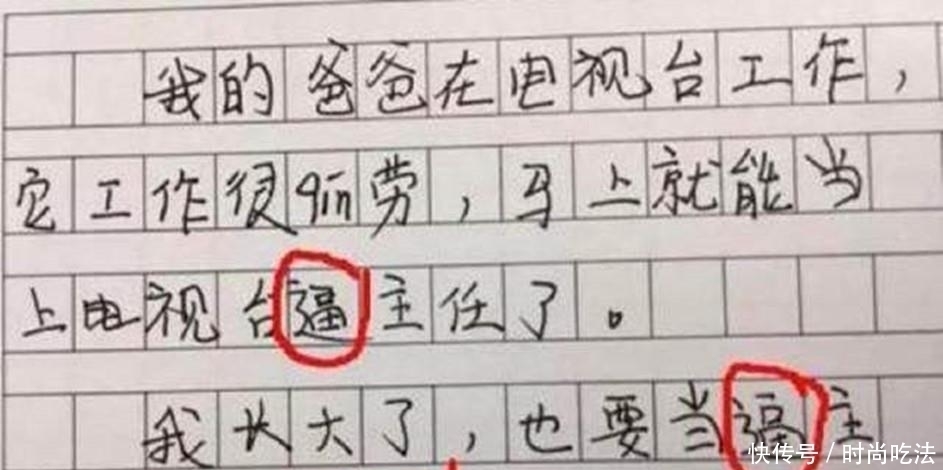 我的爸爸在电视台工作，
它工作很qin劳，马上就能当
上电视台逼主任了。
我长大了，也要当逼主
快传号／时尚吃法